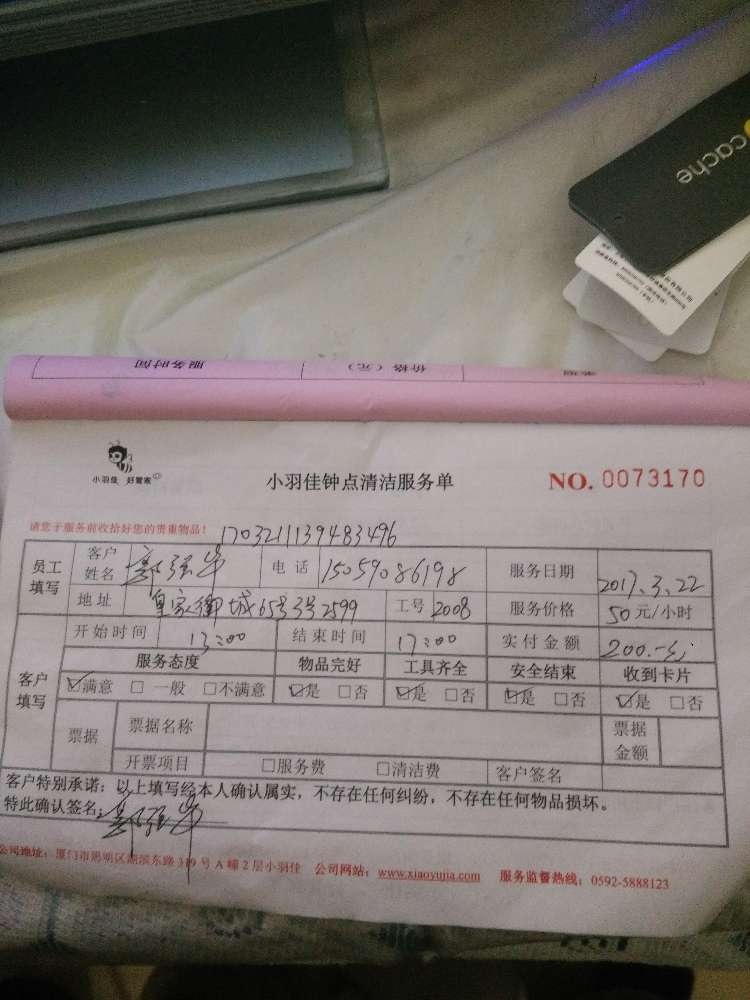 cache
服务时间 价格（元） 案据
小羽佳 好管家
小羽佳钟点清洁服务单
NO. 0073170
请您于服务前收拾好您的贵重物品！
1703211139483496
员工填写 客户姓名 郭强华 电话 15059086198 服务日期 2017.3.22
地址 皇家御城65号3号2599 工号 2008 服务价格 50元/小时
客户填写 开始时间 13:00 结束时间 17:00 实付金额 200.-元
服务态度 物品完好 工具齐全 安全结束 收到卡片
☑满意 □一般 □不满意 ☑是 □否 ☑是 □否 ☑是 □否 ☑是 □否
票据 票据名称 票据金额
开票项目 □服务费 □清洁费 客户签名
客户特别承诺：以上填写经本人确认属实，不存在任何纠纷，不存在任何物品损坏。
特此确认签名：郭强华
公司地址：厦门市思明区湖滨东路319号A幢2层小羽佳 公司网站：www.xiaoyujia.com 服务监督热线：0592-5888123